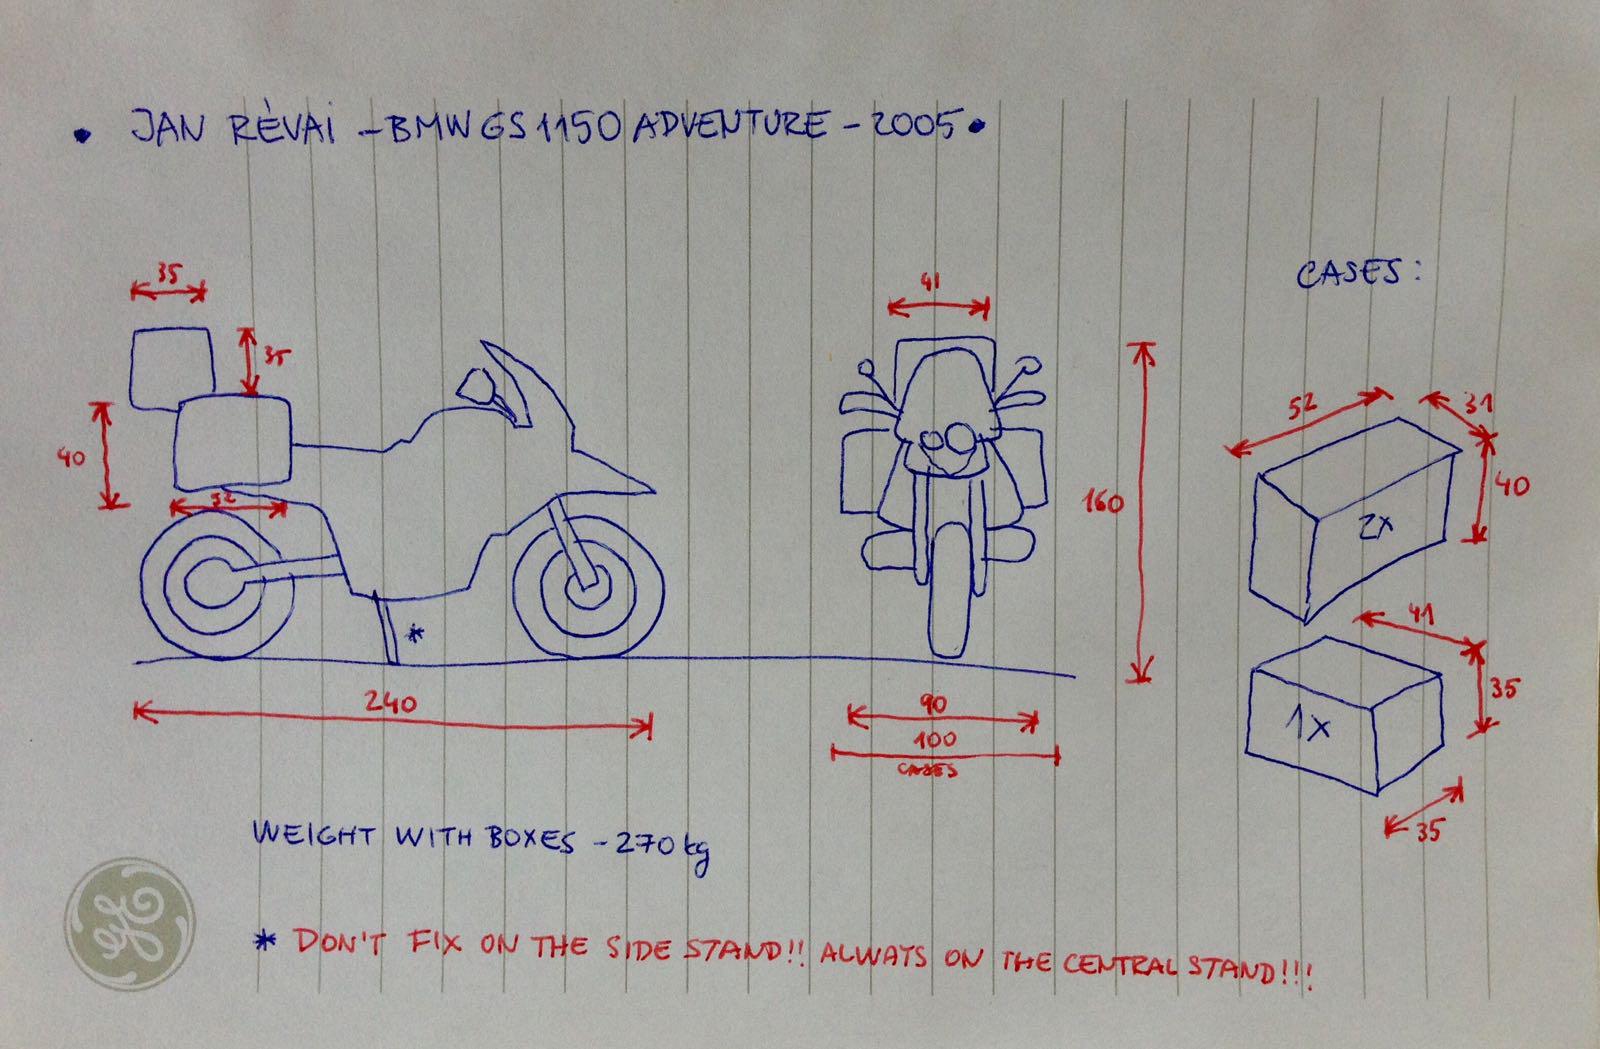 • JAN RÉVAI – BMW GS 1150 ADVENTURE – 2005 •
CASES:
35
35
40
52
240
41
160
90
100
CASES
52
31
40
2x
41
35
1x
35
WEIGHT WITH BOXES – 270 kg
* 
* DON'T FIX ON THE SIDE STAND!! ALWAYS ON THE CENTRAL STAND!!!
GE